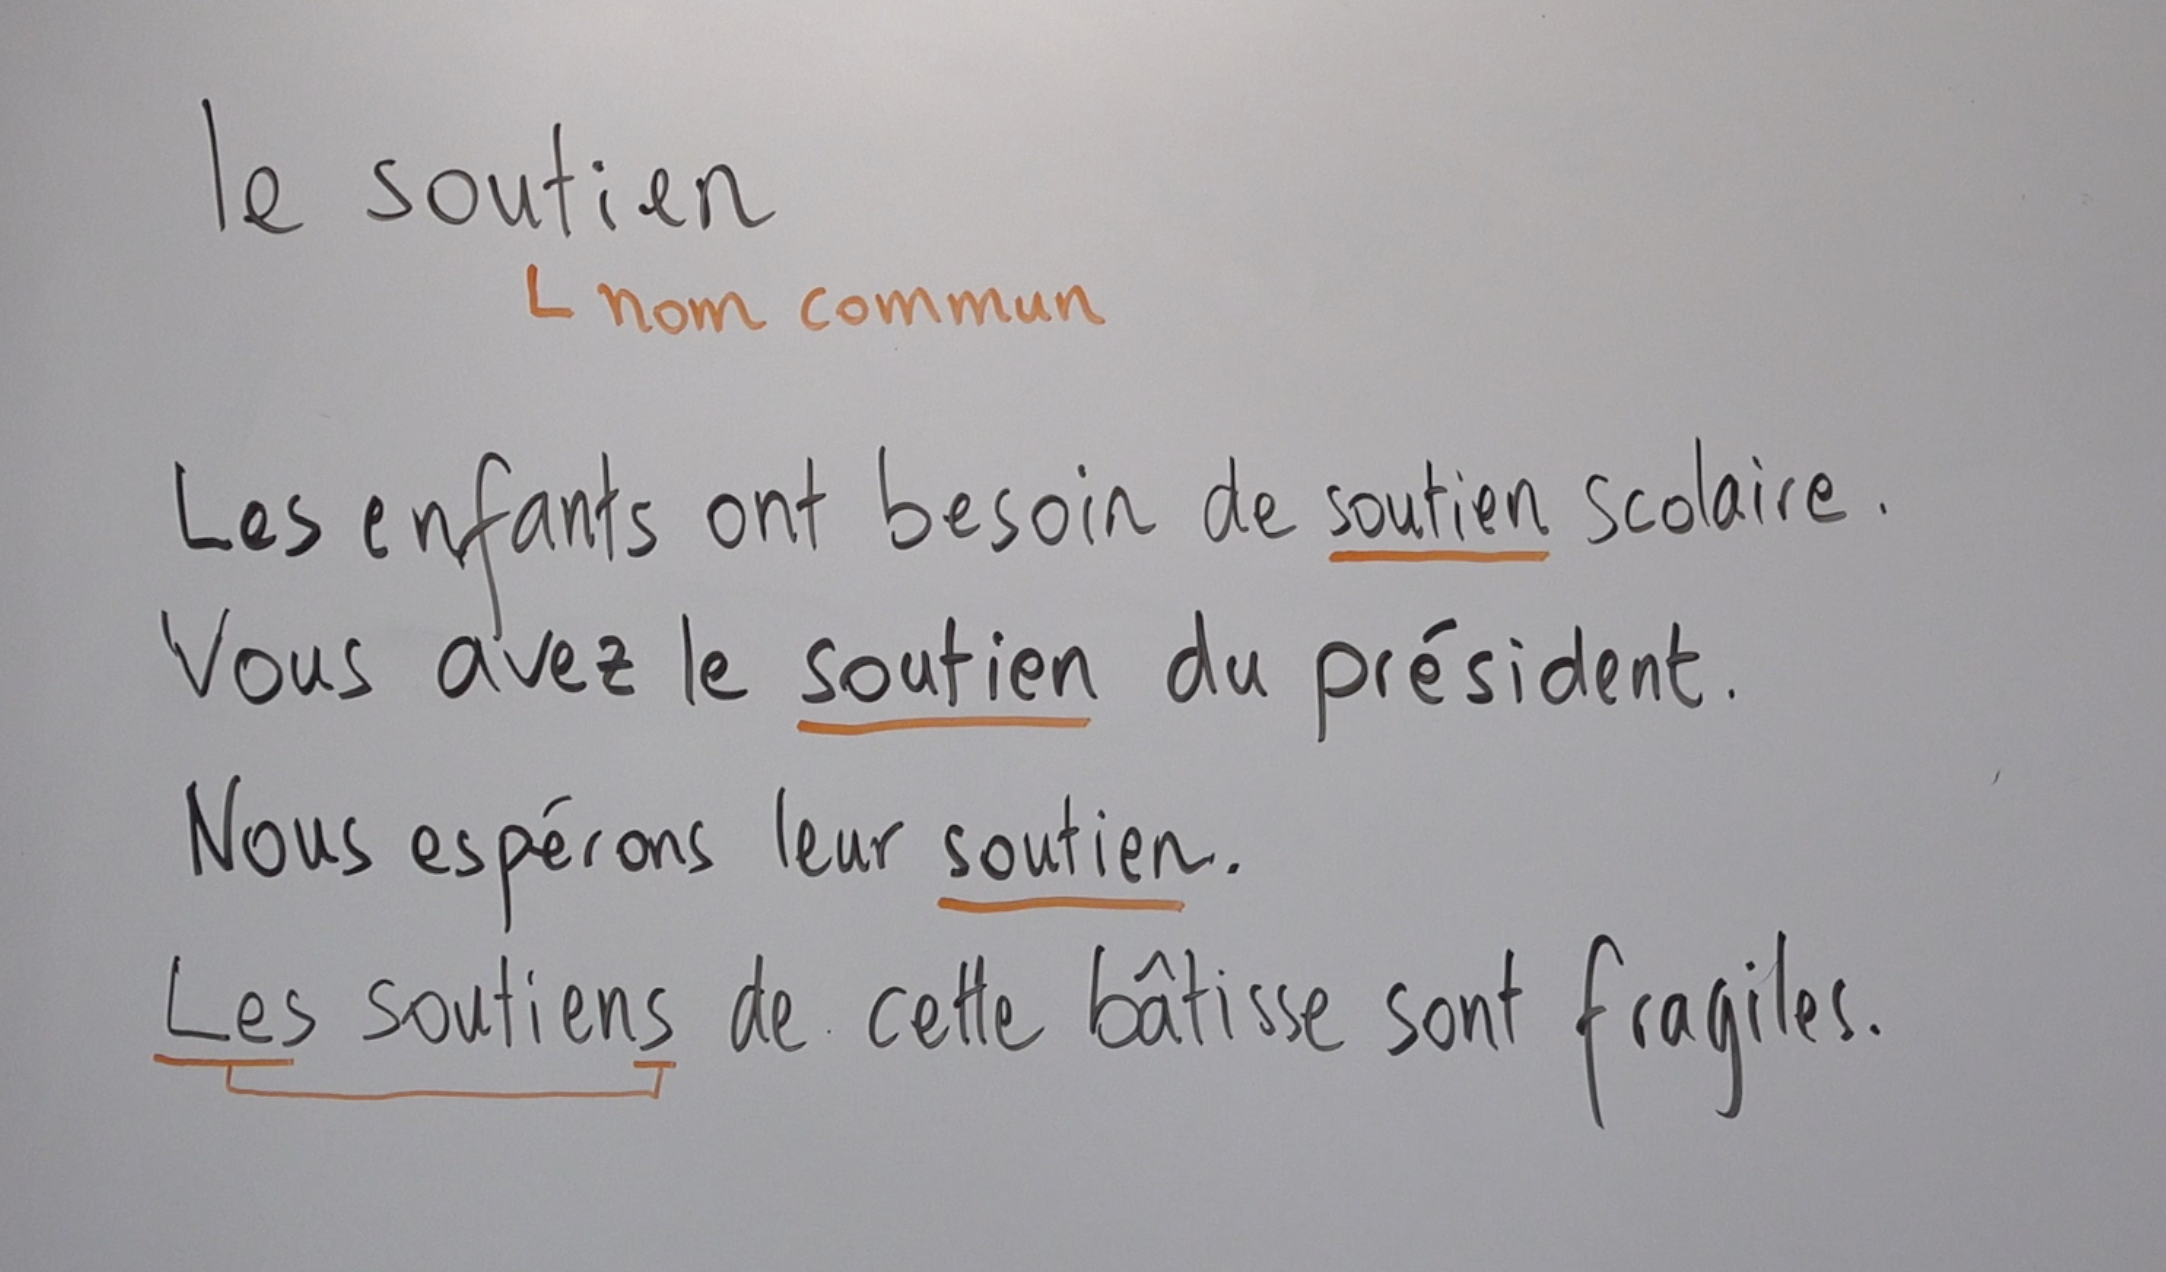 le soutien
nom commun
Les enfants ont besoin de soutien scolaire.
Vous avez le soutien du président.
Nous espérons leur soutien.
Les soutiens de cette bâtisse sont fragiles.